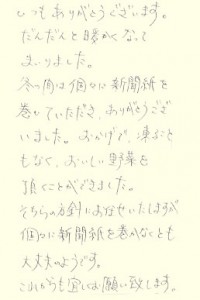 いつもありがとうございます。
だんだんと暖かくなって
まいりました。
冬の間は個々に新聞紙を
巻いていただき、ありがとうござ
いました。おかげで、凍ること
もなく、おいしい野菜を
頂くことができました。
そちらの方針におまかせいたしますが
個々に新聞紙を巻かなくとも
大丈夫のようです。
これからも宜しくお願い致します。